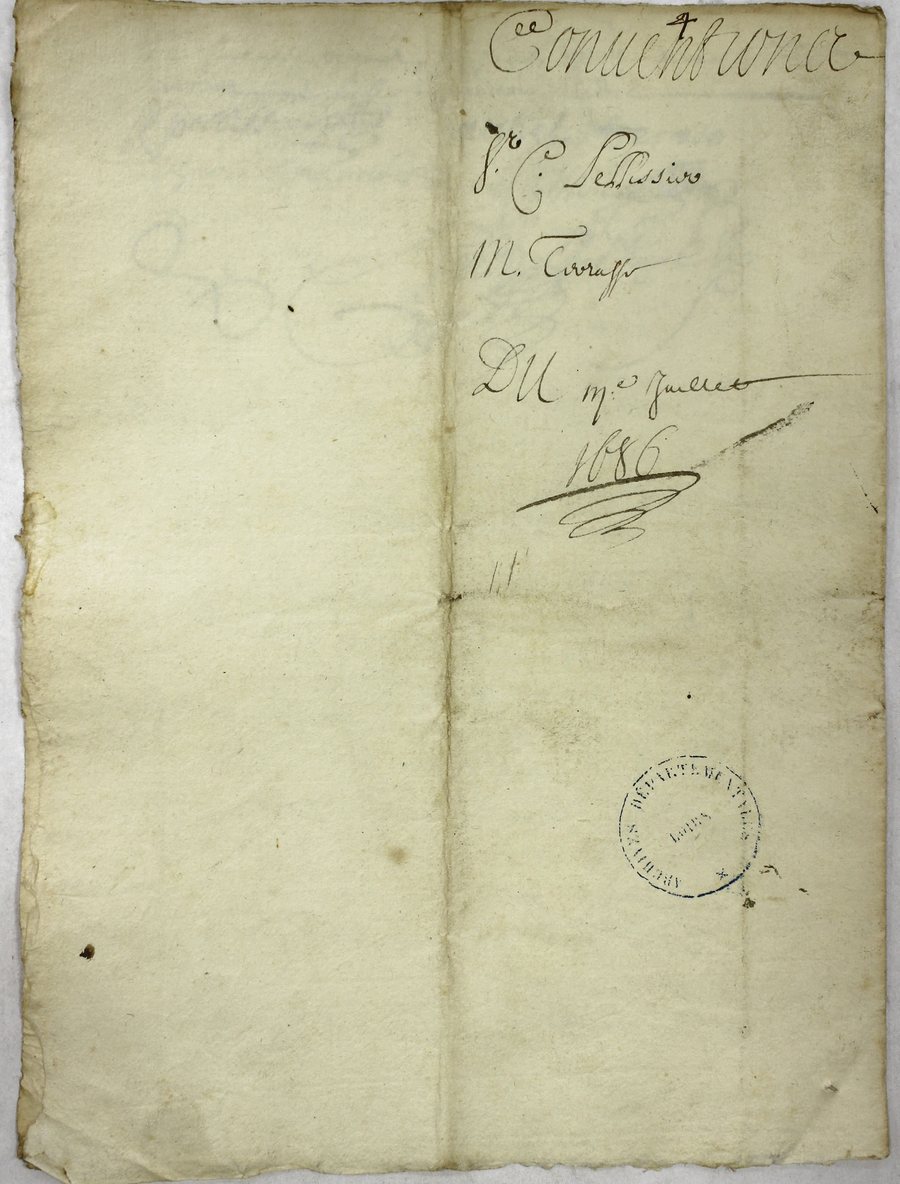 Conuentionel
Sr C. Pellissier
M. Terrasse
DU me Juillet
1686
ARCHIVES DÉPARTEMENTALES
LOIRE